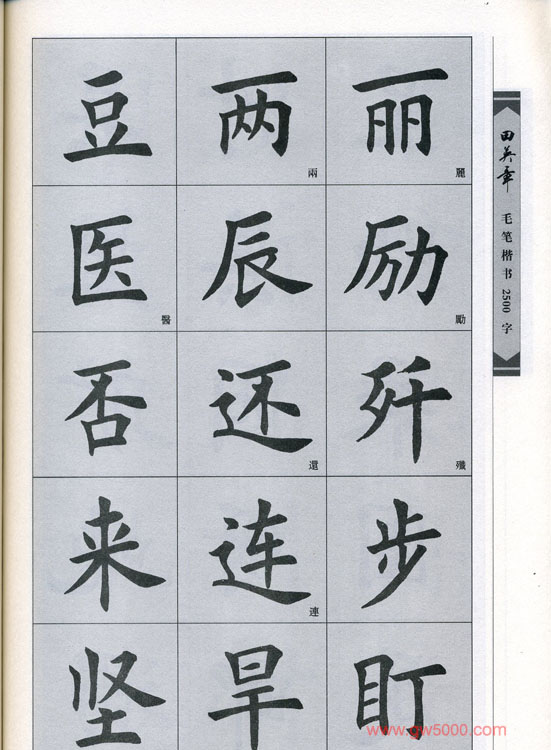 豆 两 兩 丽 麗
医 醫 辰 励 勵
否 还 還 歼 殲
来 连 連 步
坚 旱 盯
田英章
毛笔楷书2500字
www.gw5000.com